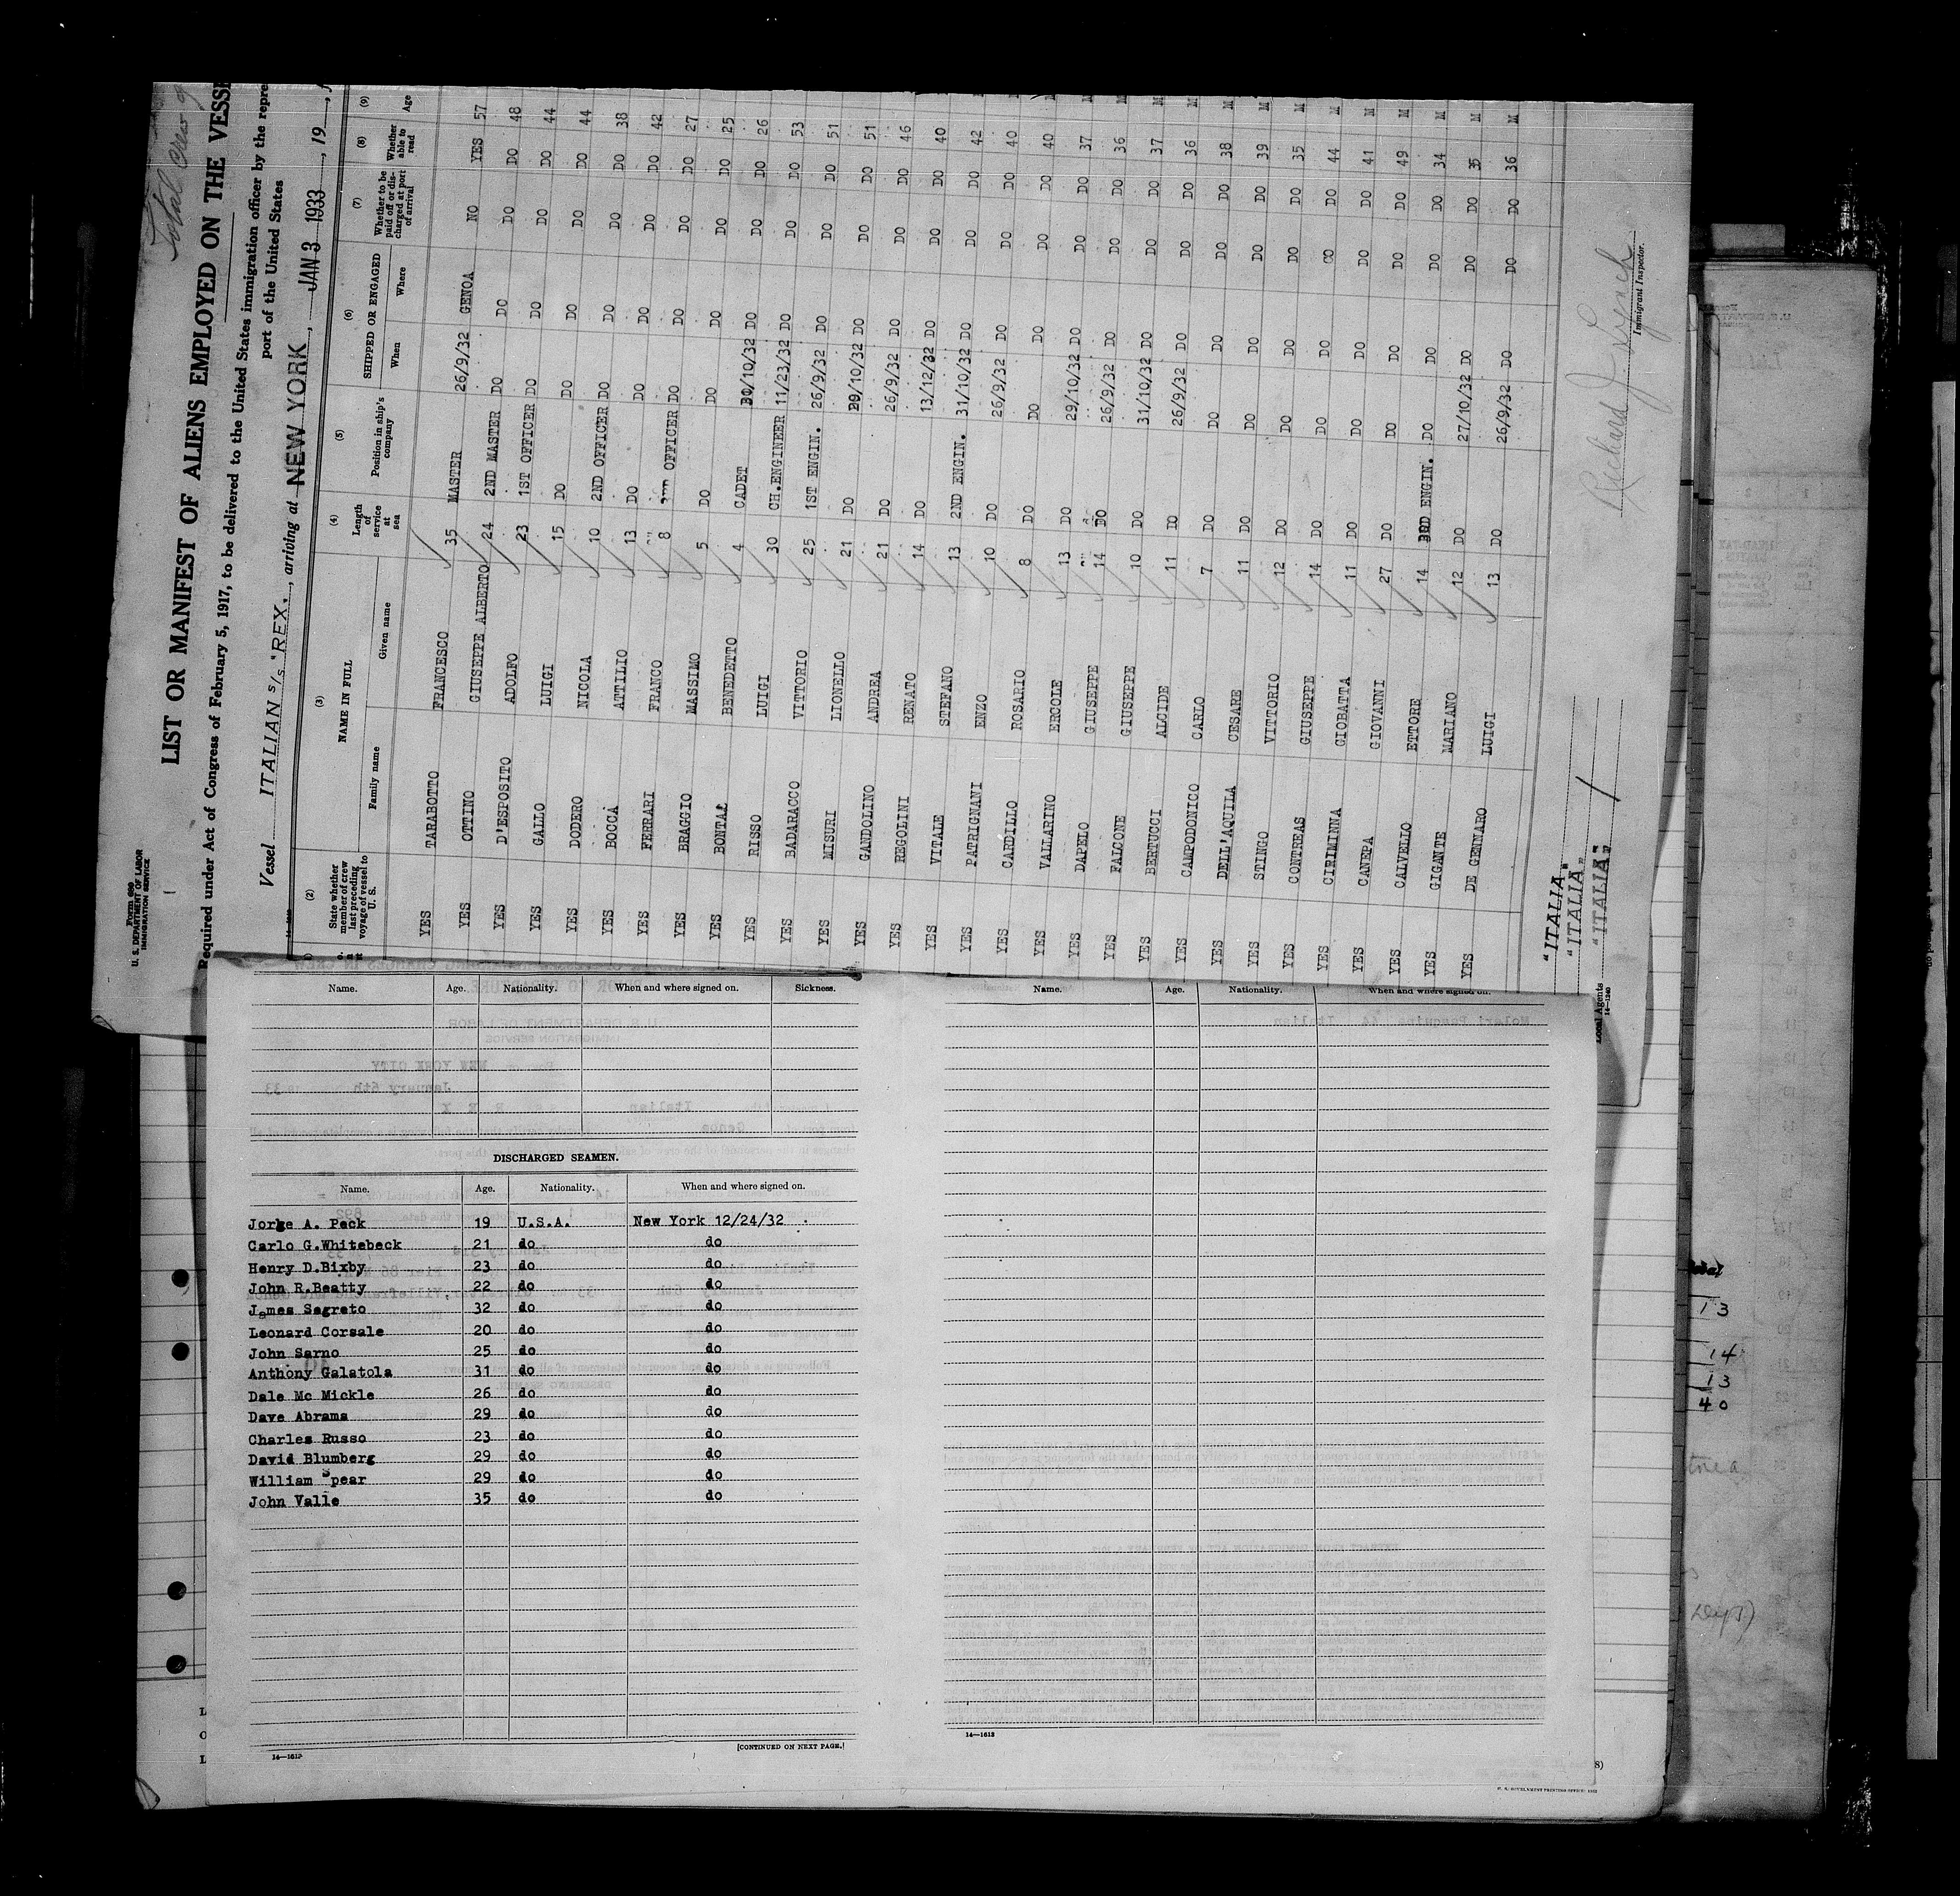 Form 689
U. S. DEPARTMENT OF LABOR
IMMIGRATION SERVICE
Total crew
LIST OR MANIFEST OF ALIENS EMPLOYED ON THE VESSE
Required under Act of Congress of February 5, 1917, to be delivered to the United States immigration officer by the repre
port of the United States
Vessel ITALIAN S/S "REX", arriving at NEW YORK, JAN 3 1933, 19
(2) (3) (4) (5) (6) (7) (8) (9)
State whether member of crew last preceding voyage of vessel to U. S. NAME IN FULL Length of service at sea Position in ship's company SHIPPED OR ENGAGED Whether to be paid off or discharged at port of arrival Whether able to read Age
Family name Given name When Where
YES TARABOTTO FRANCESCO 35 MASTER 26/9/32 GENOA NO YES 57
YES OTTINO GIUSEPPE ALBERTO 24 2ND MASTER DO DO DO DO 48
YES D'ESPOSITO ADOLFO 23 1ST OFFICER DO DO DO DO 44
YES GALLO LUIGI 15 DO DO DO DO DO 44
YES DODERO NICOLA 10 2ND OFFICER DO DO DO DO 38
YES BOCCA ATTILIO 13 DO DO DO DO DO 42
YES FERRARI FRANCO 8 OFFICER DO DO DO DO 27
YES BRAGGIO MASSIMO 5 DO DO DO DO DO 25
YES BENEDETTO 4 CADET 30/10/32 DO DO DO 26
YES RISSO LUIGI 30 CH.ENGINEER 11/23/32 DO DO DO 53
YES BADARACCO VITTORIO 25 1ST ENGIN. 26/9/32 DO DO DO 51
YES MISURI LIONELLO 21 DO 29/10/32 DO DO DO 51
YES GANDOLINO ANDREA 21 DO 26/9/32 DO DO DO 46
YES REGOLINI RENATO 14 DO 13/12/32 DO DO DO 40
YES VITALE STEFANO 13 2ND ENGIN. 31/10/32 DO DO DO 42
YES PATRIGNANI ENZO 10 DO 26/9/32 DO DO DO 40 M
YES CARDILLO ROSARIO 8 DO DO DO DO DO 40 M
YES VALLARINO ERCOLE 13 DO 29/10/32 DO DO DO 37 M
YES DAPELO GIUSEPPE 14 DO 26/9/32 DO DO DO 36 M
YES FALCONE GIUSEPPE 10 DO 31/10/32 DO DO DO 37 M
YES BERTUCCI ALCIDE 11 DO 26/9/32 DO DO DO 36 M
YES CAMPODONICO CARLO 7 DO DO DO DO DO 38 M
YES DELL'AQUILA CESARE 11 DO DO DO DO DO 39 M
YES STINGO VITTORIO 12 DO DO DO DO DO 35 M
YES CONTREAS GIUSEPPE 14 DO DO DO DO DO 44 M
YES CIRIMINNA GIOBATTA 11 DO DO DO DO DO 41 M
YES CANEPA GIOVANNI 27 DO DO DO DO DO 49 M
YES CALVELLO ETTORE 14 3RD ENGIN. DO DO DO DO 34 M
YES GIGANTE MARIANO 12 DO 27/10/32 DO DO DO 35 M
YES DE GENNARO LUIGI 13 DO 26/9/32 DO DO DO 36 M
"ITALIA"
"ITALIA"
"ITALIA"
Local Agents
14—1240
Richard J. Lynch
Immigrant Inspector.
Name. Age. Nationality. When and where signed on. Sickness.
DISCHARGED SEAMEN.
Name. Age. Nationality. When and where signed on.
Jorge A. Peck 19 U.S.A. New York 12/24/32
Carlo G.Whitebeck 21 do do
Henry D.Bixby 23 do do
John R.Beatty 22 do do
James Segreto 32 do do
Leonard Corsale 20 do do
John Sarno 25 do do
Anthony Galatola 31 do do
Dale Mc Mickle 26 do do
Dave Abrams 29 do do
Charles Russo 23 do do
David Blumberg 29 do do
William Spear 29 do do
John Valle 35 do do
14—1613
[CONTINUED ON NEXT PAGE.]
Name. Age. Nationality. When and where signed on.
14—1613
U. S. GOVERNMENT PRINTING OFFICE: 1932
13
14
13
40